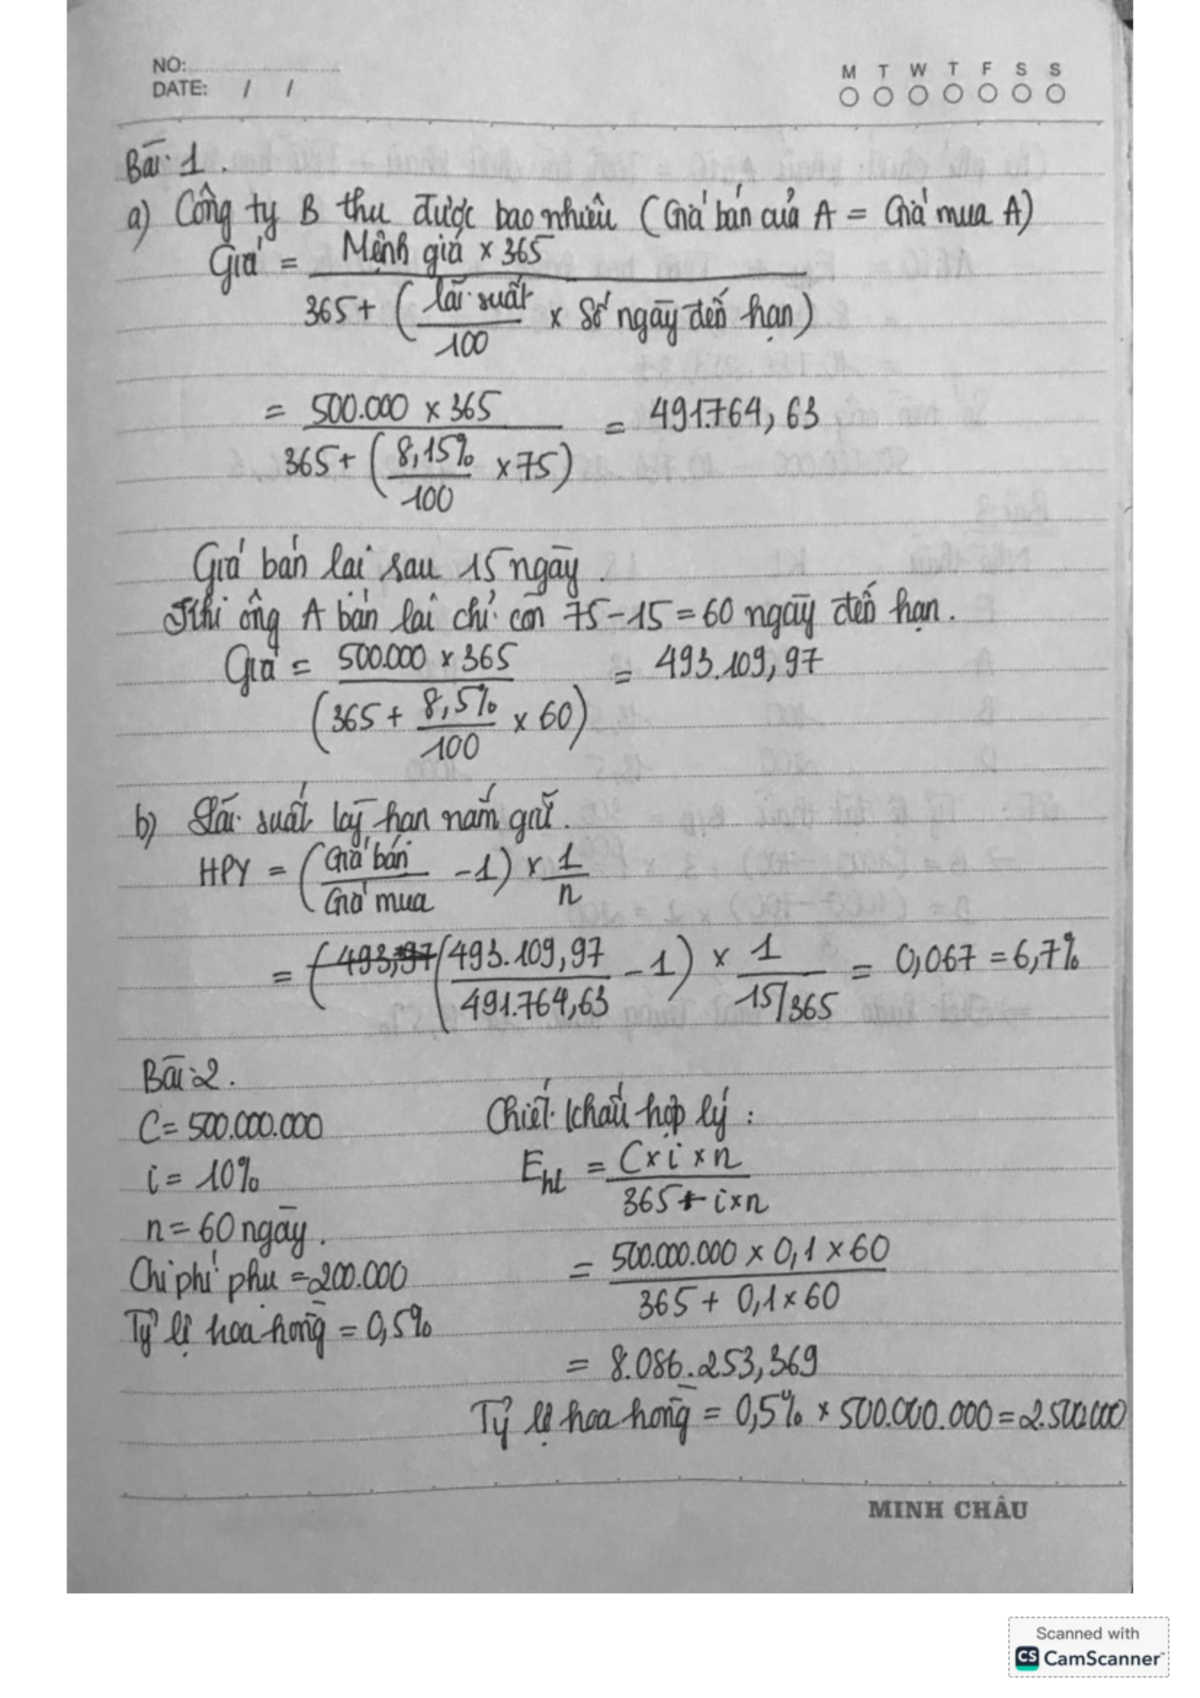 NO:
DATE: / /
M T W T F S S
Bài 1.
a) Công ty B thu được bao nhiêu (Giá bán của A = Giá mua A)
Giá = Mệnh giá x 365
365 + (lãi suất / 100 x Số ngày đến hạn)
= 500.000 x 365 / 365 + (8,15% / 100 x 75) = 491.764,63
Giá bán lại sau 15 ngày.
Khi ông A bán lại chỉ còn 75 - 15 = 60 ngày đến hạn.
Giá = 500.000 x 365 / (365 + 8,5% / 100 x 60) = 493.109,97
b) Lãi suất kỳ hạn nắm giữ.
HPY = (Giá bán / Giá mua - 1) x 1 / n
= (493.109,97 / 491.764,63 - 1) x 1 / 15/365 = 0,067 = 6,7%
Bài 2.
C = 500.000.000
i = 10%
n = 60 ngày.
Chi phí phụ = 200.000
Tỷ lệ hoa hồng = 0,5%
Chiết khấu hợp lý:
Ehl = C x i x n / 365 + i x n
= 500.000.000 x 0,1 x 60 / 365 + 0,1 x 60
= 8.086.253,369
Tỷ lệ hoa hồng = 0,5% x 500.000.000 = 2.500.000
MINH CHÂU
Scanned with
CS CamScanner